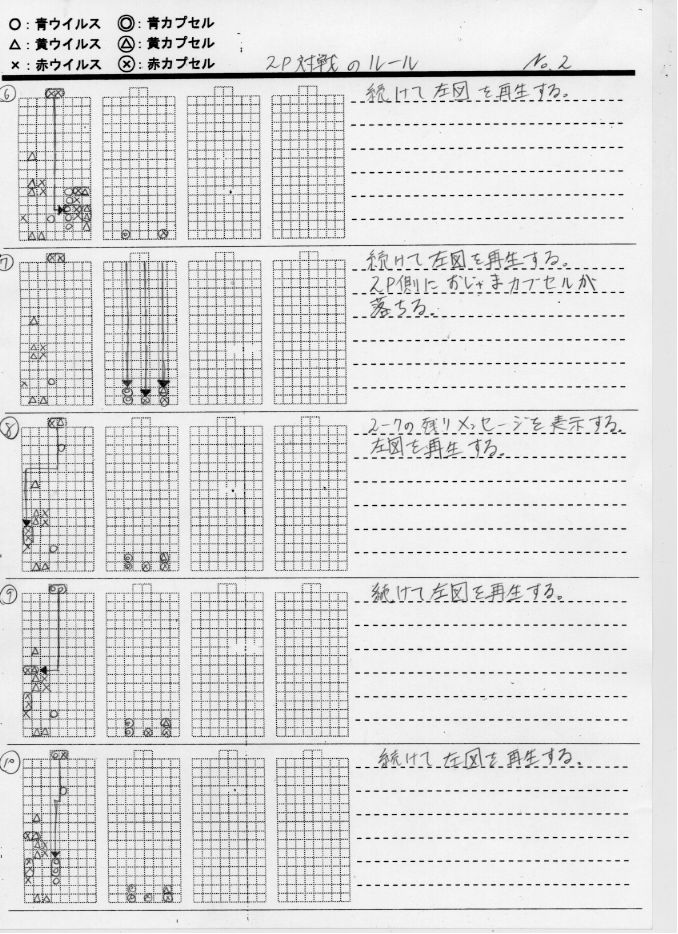 ○：青ウイルス ◎：青カプセル
△：黄ウイルス Ⓐ：黄カプセル
×：赤ウイルス ⊗：赤カプセル
2P対戦のルール No.2
⑥ 続けて左図を再生する。
⑦ 続けて左図を再生する。
2P側におじゃまカプセルが
落ちる。
⑧ 2-7の残りメッセージを表示する。
左図を再生する。
⑨ 続けて左図を再生する。
⑩ 続けて左図を再生する。